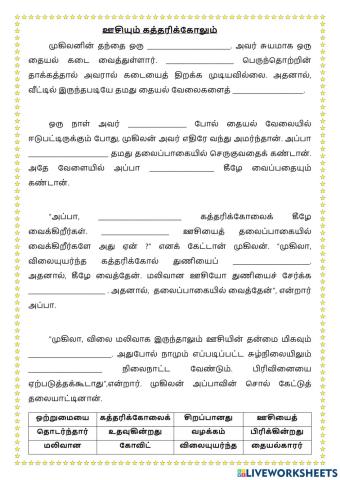 ஊசியும் கத்தரிக்கோலும்
முகிலனின் தந்தை ஒரு ____________________. அவர் சுயமாக ஒரு
தையல் கடை வைத்துள்ளார். ________________ பெருந்தொற்றின்
தாக்கத்தால் அவரால் கடையைத் திறக்க முடியவில்லை. அதனால்,
வீட்டில் இருந்தபடியே தமது தையல் வேலைகளைத் __________________.
ஒரு நாள் அவர் ______________ போல் தையல் வேலையில்
ஈடுபட்டிருக்கும் போது, முகிலன் அவர் எதிரே வந்து அமர்ந்தான். அப்பா
____________________ தமது தலைப்பாகையில் செருகுவதைக் கண்டான்.
அதே வேளையில் அப்பா ________________ கீழே வைப்பதையும்
கண்டான்.
"அப்பா, ____________________ கத்தரிக்கோலைக் கீழே
வைக்கிறீர்கள். ________________ ஊசியைத் தலைப்பாகையில்
வைக்கிறீர்களே அது ஏன் ?" எனக் கேட்டான் முகிலன். "முகிலா,
விலையுயர்ந்த கத்தரிக்கோல் துணியைப் ____________________,
அதனால், கீழே வைத்தேன். மலிவான ஊசியோ துணியைச் சேர்க்க
__________________ . அதனால், தலைப்பாகையில் வைத்தேன்", என்றார்
அப்பா.
"முகிலா, விலை மலிவாக இருந்தாலும் ஊசியின் தன்மை மிகவும்
____________________. அதுபோல் நாமும் எப்படிப்பட்ட சூழ்நிலையிலும்
__________________ நிலைநாட்ட வேண்டும். பிரிவினையை
ஏற்படுத்தக்கூடாது",என்றார். முகிலன் அப்பாவின் சொல் கேட்டுத்
தலையாட்டினான்.
ஒற்றுமையை கத்தரிக்கோலைக் சிறப்பானது ஊசியைத்
தொடர்ந்தார் உதவுகின்றது வழக்கம் பிரிக்கின்றது
மலிவான கோவிட் விலையுயர்ந்த தையல்காரர்
LIVEWORKSHEETS